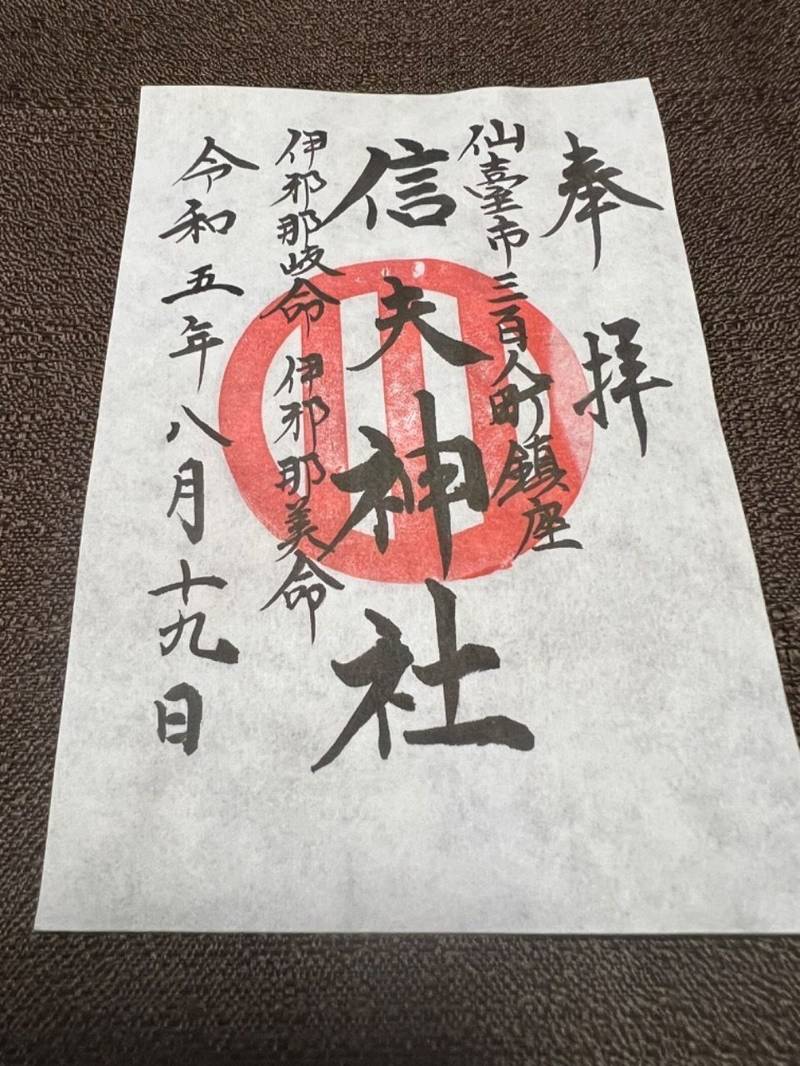 奉拝
仙臺市三百人町鎮座
信夫神社
伊邪那岐命 伊邪那美命
令和五年八月十九日